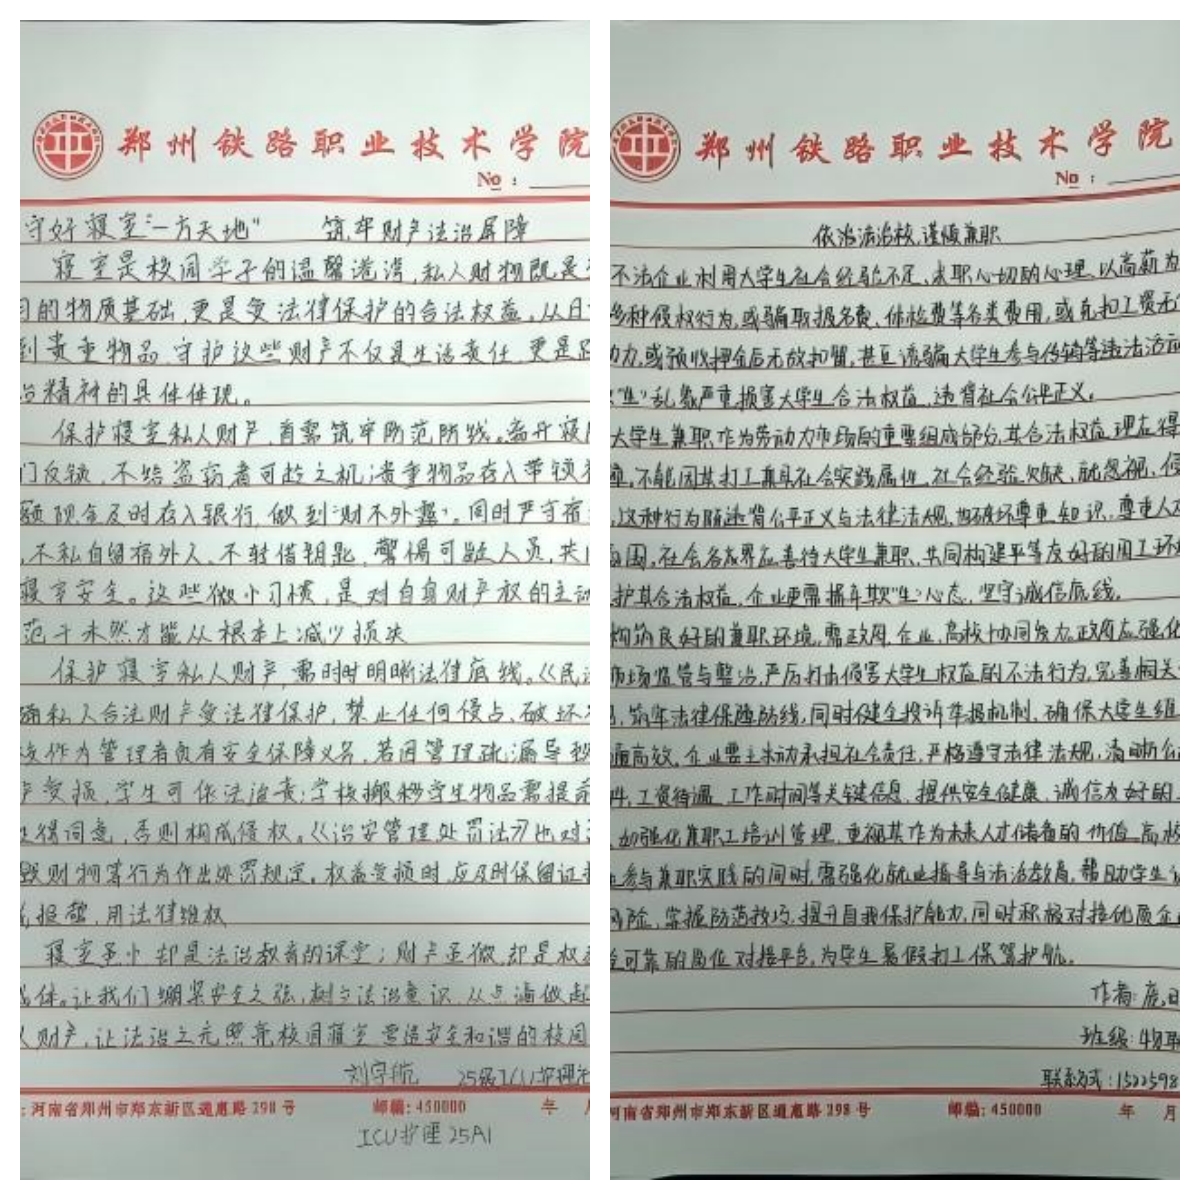 郑州铁路职业技术学院
No:
守好寝室"一方天地" 筑牢财产法治屏障
寝室是校园学子的温馨港湾,私人财物既是
的物质基础,更是受法律保护的合法权益。从日
到贵重物品,守护这些财产不仅是生活责任,更是
治精神的具体体现。
保护寝室私人财产,首需筑牢防范防线。离开寝
门反锁,不给盗窃者可趁之机;贵重物品存入带锁
额现金及时存入银行,做到"财不外露"。同时严守宿
,不私自留宿外人、不转借钥匙,警惕可疑人员,共
寝室安全。这些微小习惯,是对自身财产权的主动
范于未然才能从根本上减少损失
保护寝室私人财产,需时时明晰法律底线。《民
确私人合法财产受法律保护,禁止任何侵占、破坏
校作为管理者负有安全保障义务,若因管理疏漏导致
产受损,学生可依法追责;学校搬移学生物品需提前
征得同意,否则构成侵权。《治安管理处罚法》也对
毁财物等行为作出处罚规定。权益受损时,应及时保留证
报警,用法律维权
寝室虽小,却是法治教育的课堂;财产虽微,却是权
体。让我们绷紧安全之弦,树立法治意识,从点滴做起
人财产,让法治之光照亮校园寝室,营造安全和谐的校园
刘宇航 25级ICU护理
:河南省郑州市郑东新区通惠路298号 邮编:450000 年 月
ICU护理25A1
郑州铁路职业技术学院
No:
依治法治校,谨慎兼职
不法企业利用大学生社会经验不足、求职心切的心理,以高薪为
多种侵权行为,或骗取报名费、体检费等各类费用,或克扣工资无
动力,或预收押金后无故扣留,甚至诱骗大学生参与传销等违法活动
"生"乱象严重损害大学生合法权益,违背社会公平正义。
大学生兼职作为劳动力市场的重要组成部分,其合法权益理应得
障,不能因其打工兼具社会实践属性、社会经验欠缺,就忽视、侵
,这种行为既违背公平正义与法律法规,也破坏尊重知识、尊重人才
氛围,社会各界应善待大学生兼职、共同构建平等友好的用工环境
护其合法权益,企业更需摒弃欺"生"心态,坚守诚信底线。
构筑良好的兼职环境,需政府、企业、高校协同发力,政府应强化
市场监管与整治,严厉打击侵害大学生权益的不法行为,完善相关
,筑牢法律保障防线,同时健全投诉举报机制,确保大学生维
道高效。企业要主动承担社会责任,严格遵守法律法规,清晰公
件、工资待遇、工作时间等关键信息,提供安全健康、诚信友好的
,加强化兼职工培训管理,重视其作为未来人才储备的价值,高校
参与兼职实践的同时,需强化就业指导与法治教育,帮助学生
风险,掌握防范技巧,提升自我保护能力,同时积极对接优质企业
全可靠的岗位对接平台,为学生暑假打工保驾护航。
作者:庞
班级:物联
联系方式:1522598
河南省郑州市郑东新区通惠路298号 邮编:450000 年 月